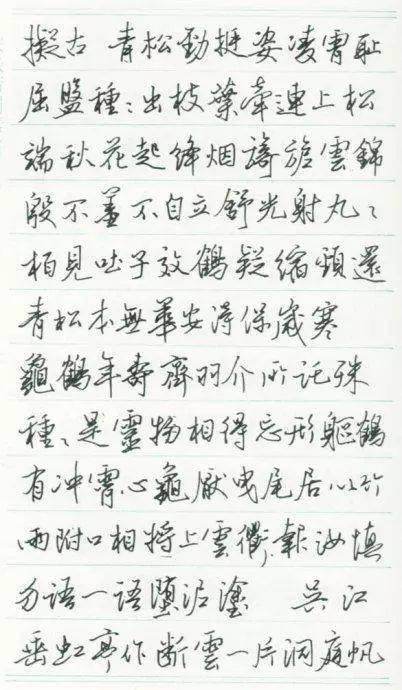 擬古 青松勁挺姿凌霄耻
屈盤種〻出枝葉牽連上松
端秋花起絳烟旖旎雲錦
殷不羞不自立舒光射丸〻
栢見吐子效鶴疑縮頸還
青松本無華安得保歲寒
龜鶴年壽齊羽介所託殊
種〻是靈物相得忘形軀鶴
有冲霄心龜厭曳尾居以竹
兩附口相將上雲衢報汝慎
勿語一語墮泥塗 吳江
垂虹亭作 断雲一片洞庭帆